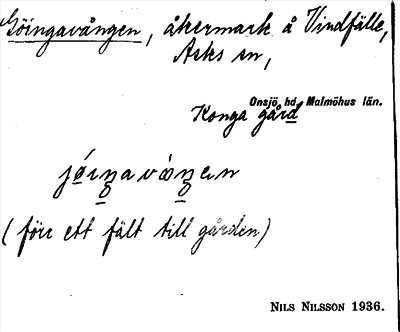 Göingavången, åkermark å Vindfälle,
Asks sn,
Onsjö hd. Malmöhus län.
Konga gård
jǿi̯ŋavǻŋen
(förr ett fält till gården)
NILS NILSSON 1936.